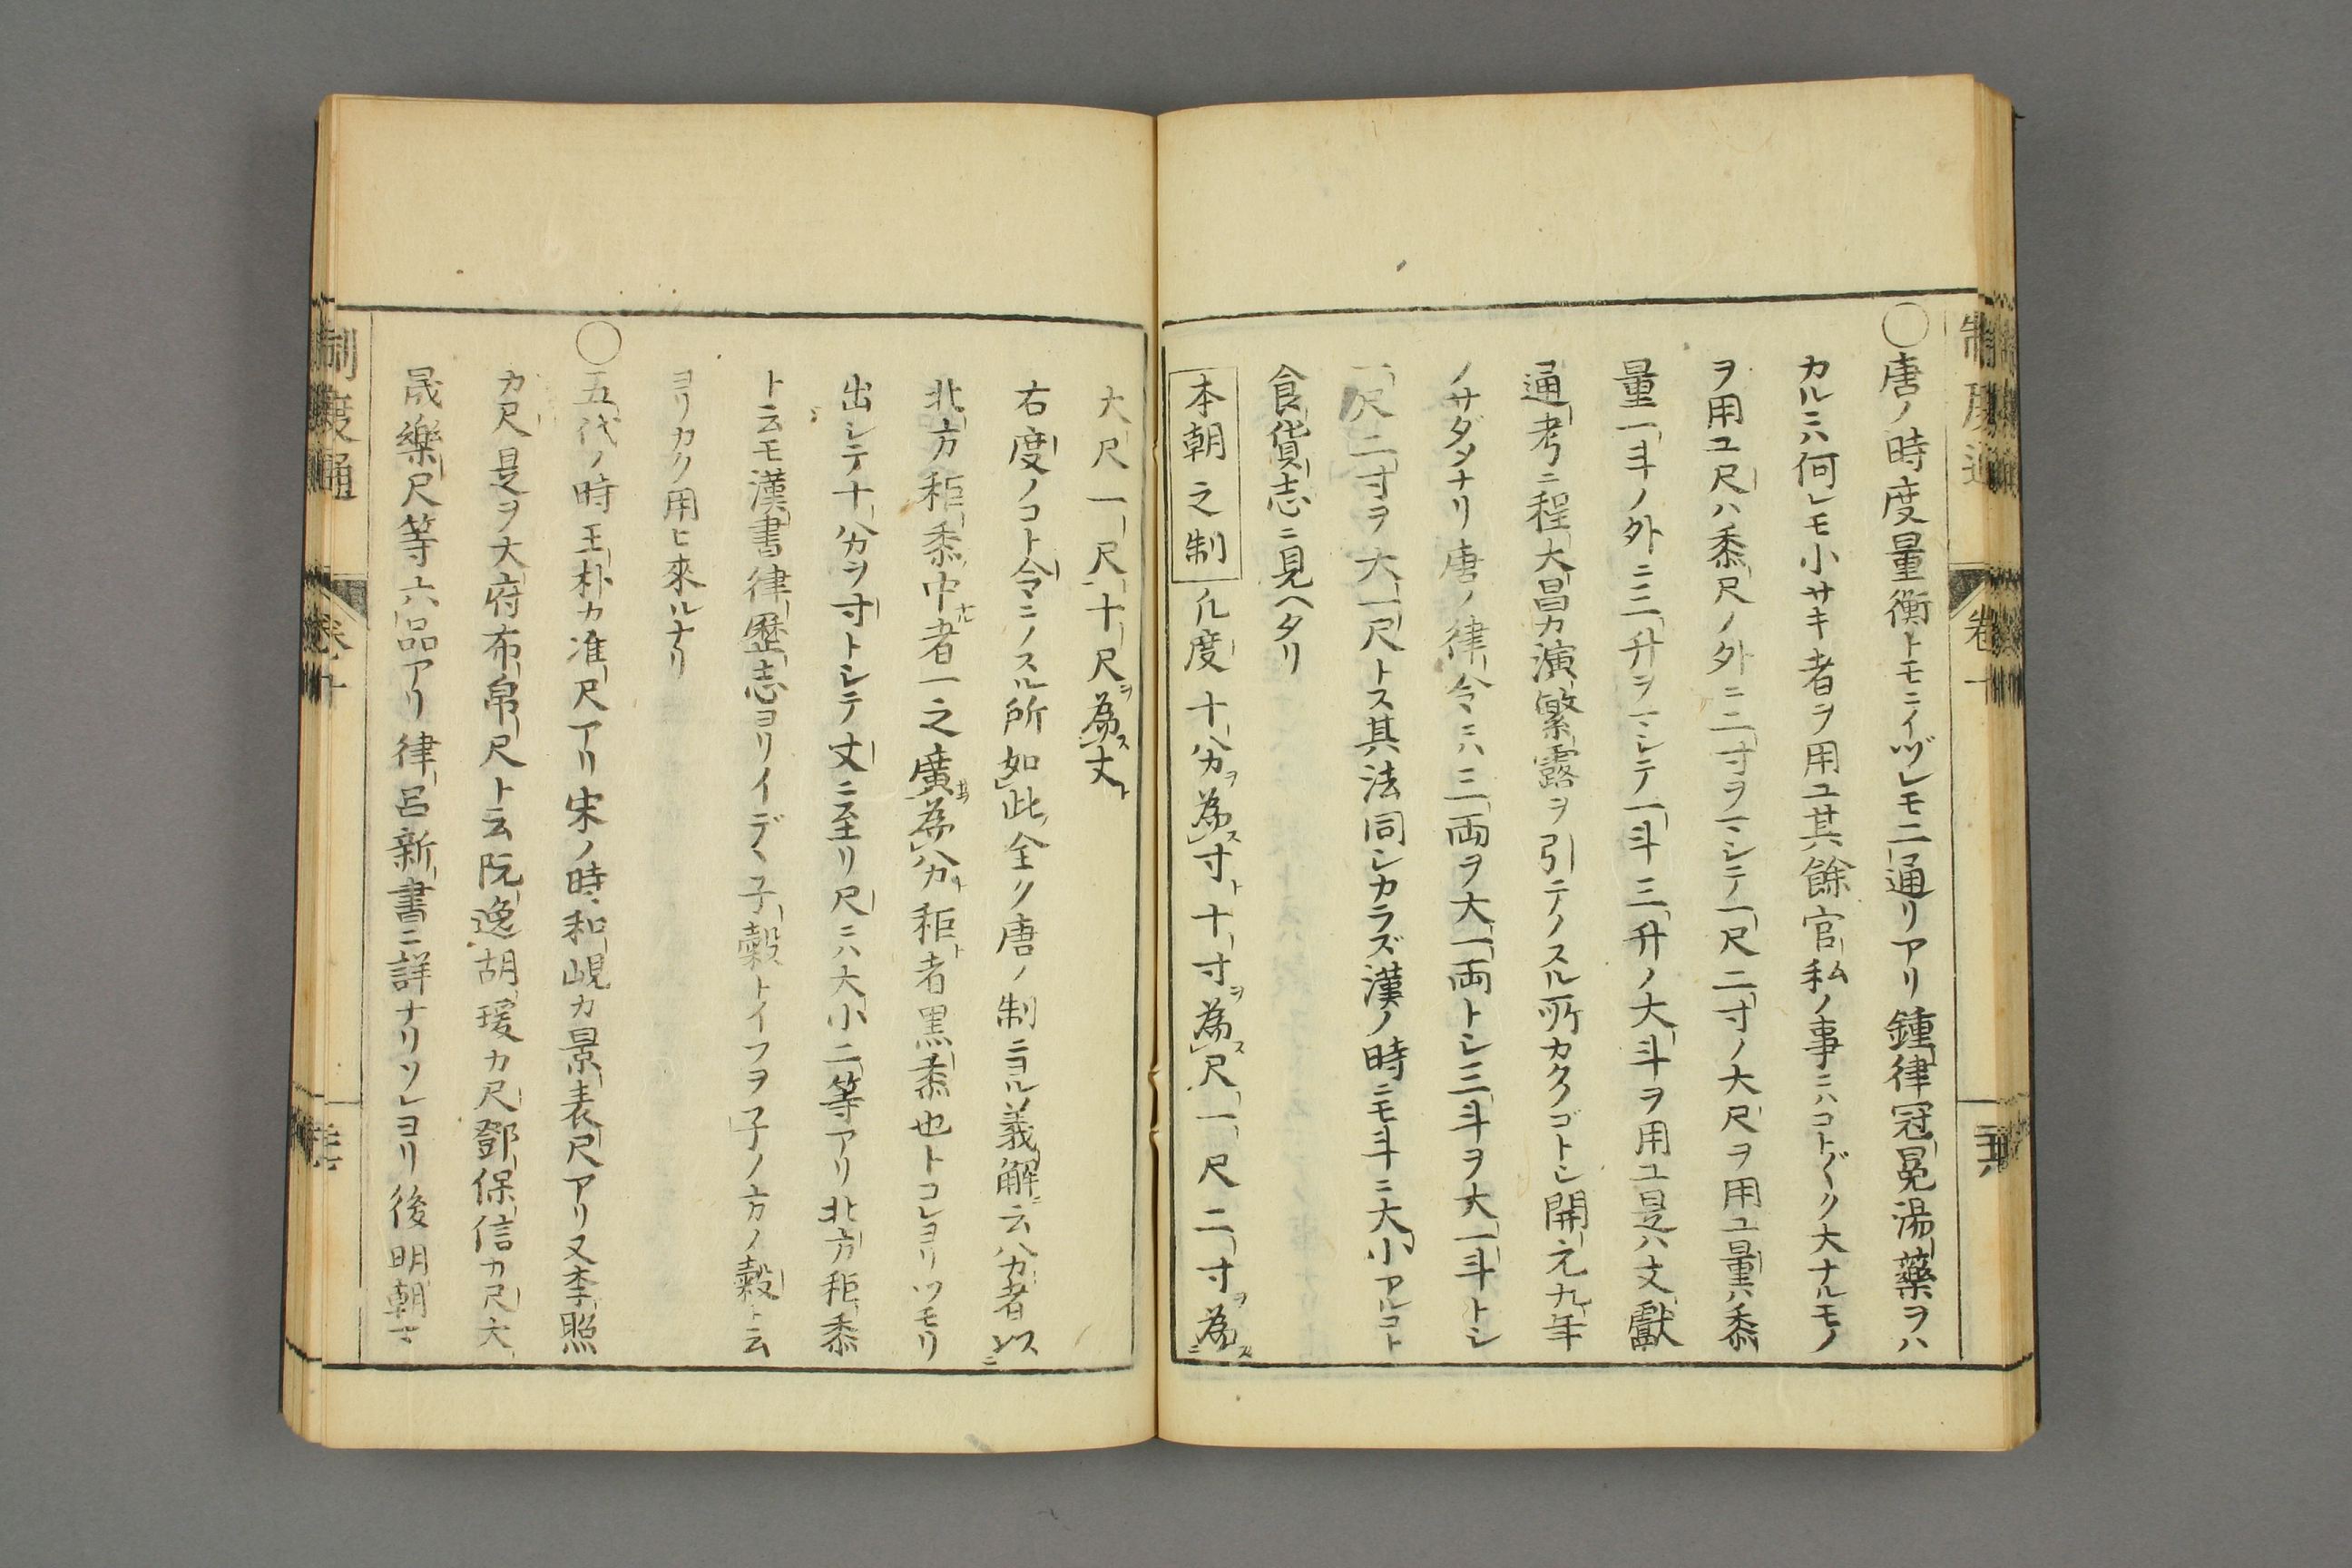 ○唐ノ時度量衡トモニイヅレモ二通リアリ鍾律冠冕湯藥ヲハ
カルニハ何レモ小サキ者ヲ用ユ其餘官私ノ事ニハコト〲ク大ナルモノ
ヲ用ユ尺ハ黍尺ノ外ニ二寸ヲマシテ一尺二寸ノ大尺ヲ用ユ量ハ黍
量一斗ノ外ニ三升ヲマシテ一斗三升ノ大斗ヲ用ユ是ハ文獻
通考ニ程大昌カ演繁露ヲ引テノスル所カクノゴトシ開元九年
ノサダメナリ唐ノ律令ニハ三兩ヲ大一兩トシ三斗ヲ大一斗トシ
一尺二寸ヲ大一尺トス其法同シカラズ漢ノ時ニモ斗ニ大小アルコト
食貨志ニ見ヘタリ
本朝之制 凡度十分ヲ為ス寸ト十寸ヲ為ス尺一尺二寸ヲ為ス
大尺一尺十尺ヲ為ス丈ト
右度ノコト令ニノスル所如此全ク唐ノ制ニヨル義解ニ云ハ分者
北方秬黍中ナル者一之廣為分秬者黒黍也トコレヨリツモリ
出シテ十分ヲ寸トシテ丈ニ至リ尺ニハ大小二等アリ北方秬黍
ト云モ漢書律歷志ヨリイデヽ子穀トイフヲ子ノ方ノ穀ト云
ヨリカク用ヒ來ルナリ
○五代ノ時王朴カ准尺アリ宋ノ時和峴カ景表尺アリ又李照
カ尺是ヲ大府布帛尺ト云阮逸胡瑗カ尺鄧保信カ尺大
晟樂尺等六品アリ律呂新書ニ詳ナリソレヨリ後明朝マ
制度通
卷十